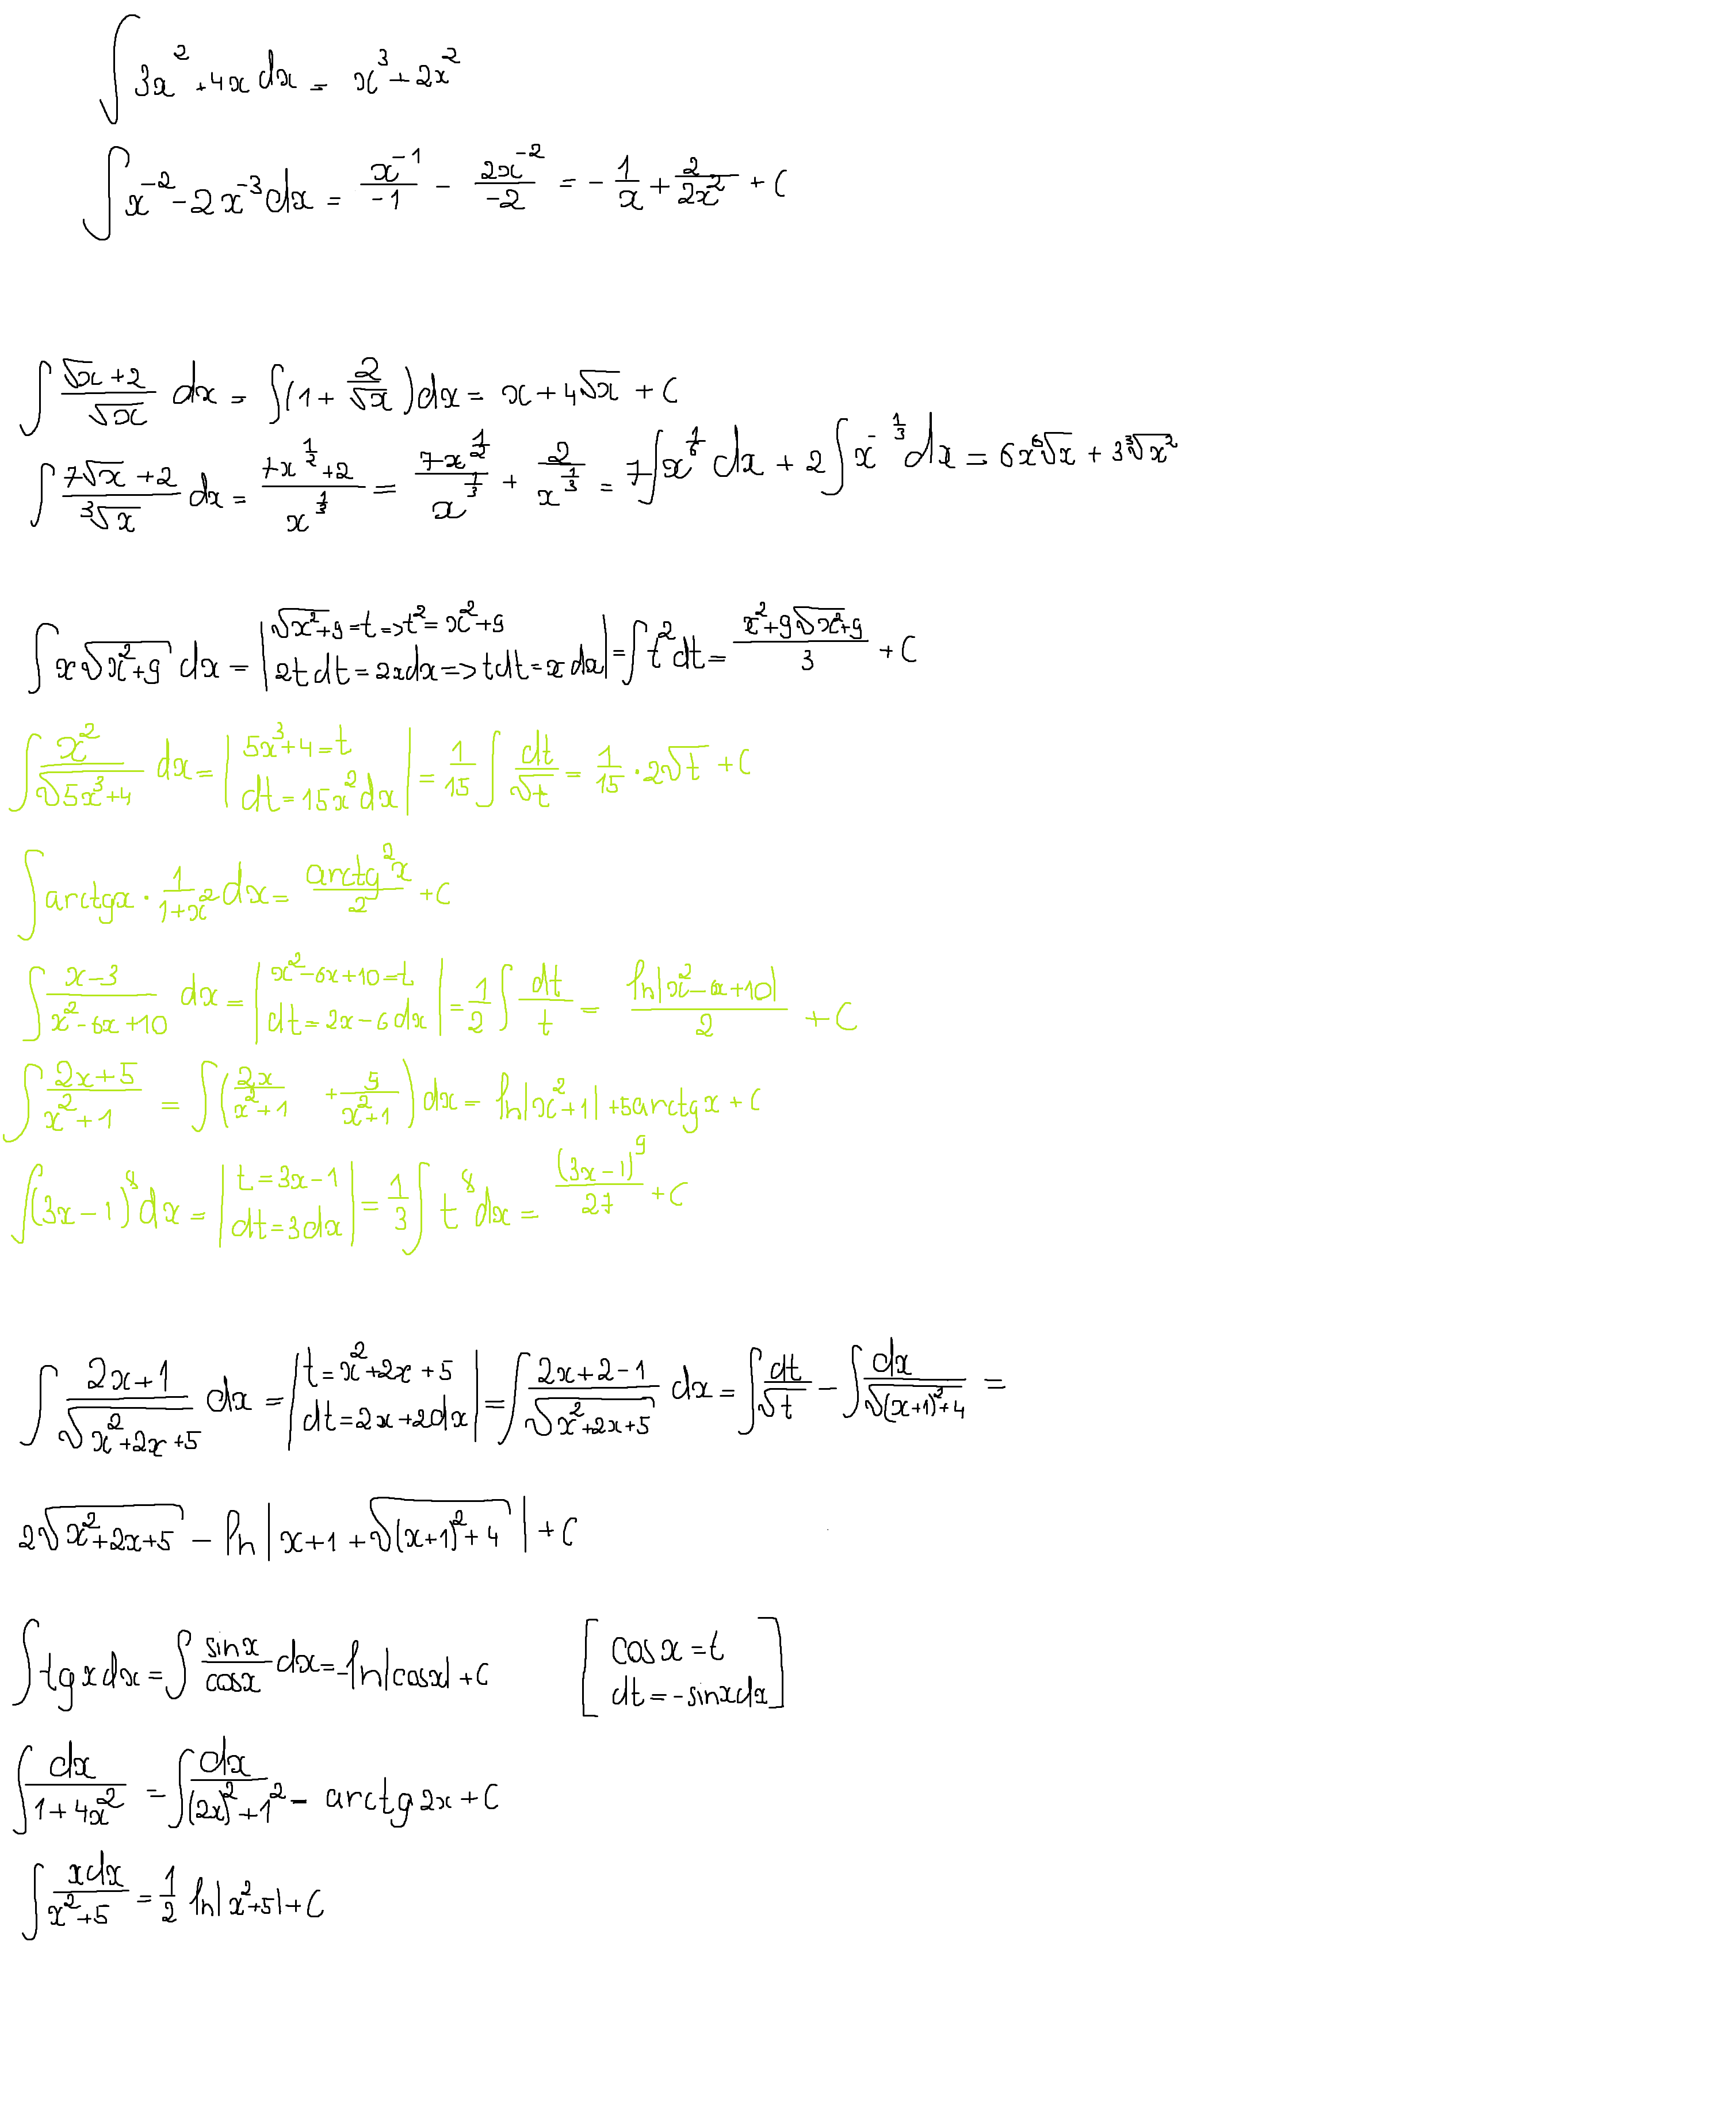 ∫ 3x² + 4x dx = x³ + 2x²
∫ x⁻² - 2x⁻³ dx = x⁻¹/-1 - 2x⁻²/-2 = - 1/x + 2/2x² + C
∫ (√x + 2)/√x dx = ∫(1 + 2/√x) dx = x + 4√x + C
∫ (7√x + 2)/∛x dx = (7x^(1/2) + 2)/x^(1/3) = 7x^(1/2)/x^(1/3) + 2/x^(1/3) = 7∫ x^(1/6) dx + 2∫ x^(-1/3) dx = 6x ⁶√x + 3 ∛x²
∫ x√(x²+9) dx = | √(x²+9) = t => t² = x²+9 | 2t dt = 2x dx => t dt = x dx | = ∫ t² dt = (x²+9√(x²+9))/3 + C
∫ x²/√(5x³+4) dx = | 5x³+4 = t | dt = 15x² dx | = 1/15 ∫ dt/√t = 1/15 · 2√t + C
∫ arctgx · 1/(1+x²) dx = arctg²x/2 + C
∫ (x-3)/(x²-6x+10) dx = | x²-6x+10 = t | dt = 2x-6 dx | = 1/2 ∫ dt/t = ln|x²-6x+10|/2 + C
∫ (2x+5)/(x²+1) = ∫ (2x/(x²+1) + 5/(x²+1)) dx = ln|x²+1| + 5arctgx + C
∫(3x-1)⁸ dx = | t = 3x-1 | dt = 3dx | = 1/3 ∫ t⁸ dx = (3x-1)⁹/27 + C
∫ (2x+1)/√(x²+2x+5) dx = | t = x²+2x+5 | dt = 2x+2dx | = ∫ (2x+2-1)/√(x²+2x+5) dx = ∫ dt/√t - ∫ dx/√((x+1)²+4) =
2√(x²+2x+5) - ln|x+1+√((x+1)²+4)| + C
∫ tgx dx = ∫ sinx/cosx dx = -ln|cosx| + C [ cosx = t | dt = -sinxdx ]
∫ dx/(1+4x²) = ∫ dx/((2x)²+1²) - arctg2x + C
∫ xdx/(x²+5) = 1/2 ln|x²+5| + C